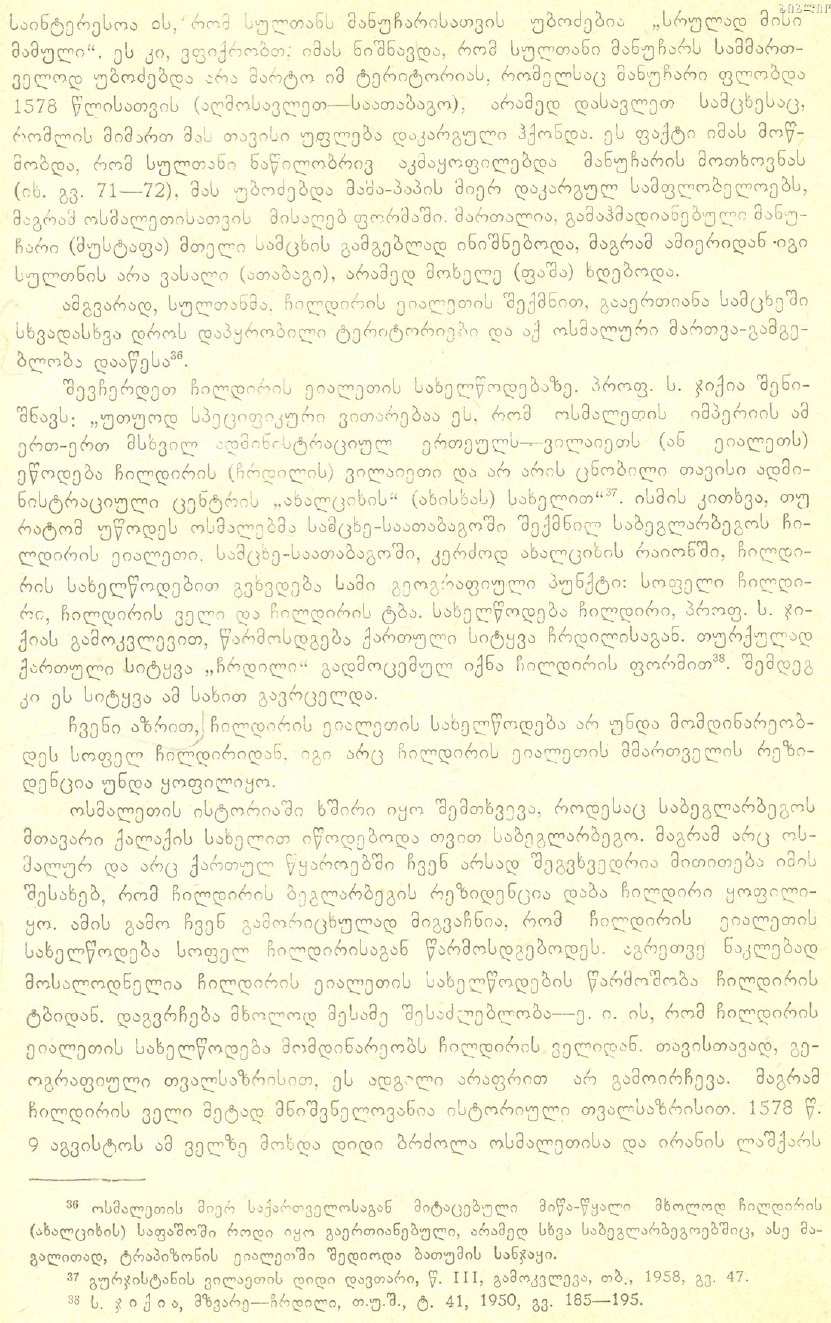 საინტერესოა ის, რომ სულთანს მანუჩარისათვის უბოძებია „სრულად მისი
მამული“. ეს კი, ვფიქრობთ, იმას ნიშნავდა, რომ სულთანი მანუჩარს სამმართ-
ველოდ უბოძებდა არა მარტო იმ ტერიტორიას, რომელსაც მანუჩარი ფლობდა
1578 წლისათვის (აღმოსავლეთ—საათაბაგო), არამედ დასავლეთ სამცხესაც,
რომლის მიმართ მას თავისი უფლება დაკარგული ჰქონდა. ეს ფაქტი იმას მოწ-
მობდა, რომ სულთანი ნაწილობრივ აკმაყოფილებდა მანუჩარის მოთხოვნას
(იხ. გვ. 71—72), მას უბოძებდა მამა-პაპის მიერ დაკარგულ სამფლობელოებს,
მაგრამ ოსმალეთისათვის მისაღებ ფორმაში. მართალია, გამაჰმადიანებული მანუ-
ჩარი (მუსტაფა) მთელი სამცხის გამგებლად ინიშნებოდა, მაგრამ ამიერიდან იგი
სულთნის არა ვასალი (ათაბაგი), არამედ მოხელე (ფაშა) ხდებოდა.
ამგვარად, სულთანმა, ჩილდირის ეიალეთის შექმნით, გააერთიანა სამცხეში
სხვადასხვა დროს დაპყრობილი ტერიტორიები და აქ ოსმალური მართვა-გამგე-
ბლობა დააწესა³⁶.
შევჩერდეთ ჩილდირის ეიალეთის სახელწოდებაზე. პროფ. ს. ჯიქია შენი-
შნავს: „უთუოდ სპეციფიკური ვითარებაა ეს, რომ ოსმალეთის იმპერიის ამ
ერთ-ერთ მსხვილ ადმინისტრაციულ ერთეულს—ვილაიეთს (ან ეიალეთს)
ეწოდება ჩილდირის (ჩრდილის) ვილაიეთი და არ არის ცნობილი თავისი ადმი-
ნისტრაციული ცენტრის „ახალციხის“ (ახისხას) სახელით“³⁷. ისმის კითხვა, თუ
რატომ უწოდეს ოსმალებმა სამცხე-საათაბაგოში შექმნილ საბეგლარბეგოს ჩი-
ლდირის ეიალეთი. სამცხე-საათაბაგოში, კერძოდ ახალციხის რაიონში, ჩილდი-
რის სახელწოდებით გვხვდება სამი გეოგრაფიული პუნქტი: სოფელი ჩილდი-
რი, ჩილდირის ველი და ჩილდირის ტბა. სახელწოდება ჩილდირი, პროფ. ს. ჯი-
ქიას გამოკვლევით, წარმოსდგება ქართული სიტყვა ჩრდილისაგან. თურქულად
ქართული სიტყვა „ჩრდილი“ გადმოცემულ იქნა ჩილდირის ფორმით³⁸. შემდეგ
კი ეს სიტყვა ამ სახით გავრცელდა.
ჩვენი აზრით, ჩილდირის ეიალეთის სახელწოდება არ უნდა მომდინარეობ-
დეს სოფელ ჩილდირიდან, იგი არც ჩილდირის ეიალეთის მმართველის რეზი-
დენცია უნდა ყოფილიყო.
ოსმალეთის ისტორიაში ხშირი იყო შემთხვევა, როდესაც საბეგლარბეგოს
მთავარი ქალაქის სახელით იწოდებოდა თვით საბეგლარბეგო. მაგრამ არც ოს-
მალურ და არც ქართულ წყაროებში ჩვენ არსად შეგვხვედრია მითითება იმის
შესახებ, რომ ჩილდირის ბეგლარბეგის რეზიდენცია დაბა ჩილდირი ყოფილი-
ყო. ამის გამო ჩვენ გამორიცხულად მიგვაჩნია, რომ ჩილდირის ეიალეთის
სახელწოდება სოფელ ჩილდირისაგან წარმოსდგებოდეს. აგრეთვე ნაკლებად
მოსალოდნელია ჩილდირის ეიალეთის სახელწოდების წარმოშობა ჩილდირის
ტბიდან. დაგვრჩება მხოლოდ მესამე შესაძლებლობა—ე. ი. ის, რომ ჩილდირის
ეიალეთის სახელწოდება მომდინარეობს ჩილდირის ველიდან. თავისთავად, გე-
ოგრაფიული თვალსაზრისით, ეს ადგილი არაფრით არ გამოირჩევა. მაგრამ
ჩილდირის ველი მეტად მნიშვნელოვანია ისტორიული თვალსაზრისით. 1578 წ.
9 აგვისტოს ამ ველზე მოხდა დიდი ბრძოლა ოსმალეთისა და ირანის ლაშქარს
³⁶ ოსმალეთის მიერ საქართველოსაგან მიტაცებული მიწა-წყალი მხოლოდ ჩილდირის
(ახალციხის) საფაშოში როდი იყო გაერთიანებული, არამედ სხვა საბეგლარბეგოებშიც, ასე მა-
გალითად, ტრაპიზონის ეიალეთში შედიოდა ბათუმის სანჯაყი.
³⁷ გურჯისტანის ვილაეთის დიდი დავთარი, წ. III, გამოკვლევა, თბ., 1958, გვ. 47.
³⁸ ს. ჯიქია, მზვარე—ჩრდილი, თ.უ.შ., ტ. 41, 1950, გვ. 185—195.